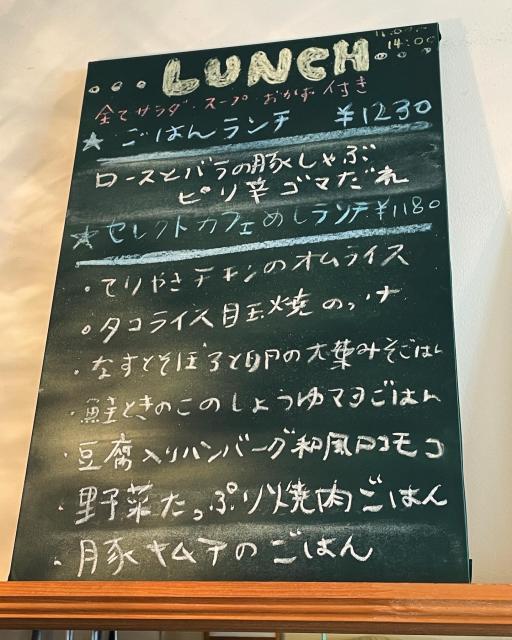 LUNCH
14:00
全てサラダ・スープ・おかず付き
★ごはんランチ ¥1230
ロースとバラの豚しゃぶ
ピリ辛ゴマだれ
★セレクトカフェめしランチ¥1180
・てりやきチキンのオムライス
・タコライス目玉焼のっけ
・なすとそぼろと卵の大葉みそごはん
・鮭ときのこのしょうゆマヨごはん
・豆腐入りハンバーグ和風ロコモコ
・野菜たっぷり焼肉ごはん
・豚キムチのごはん